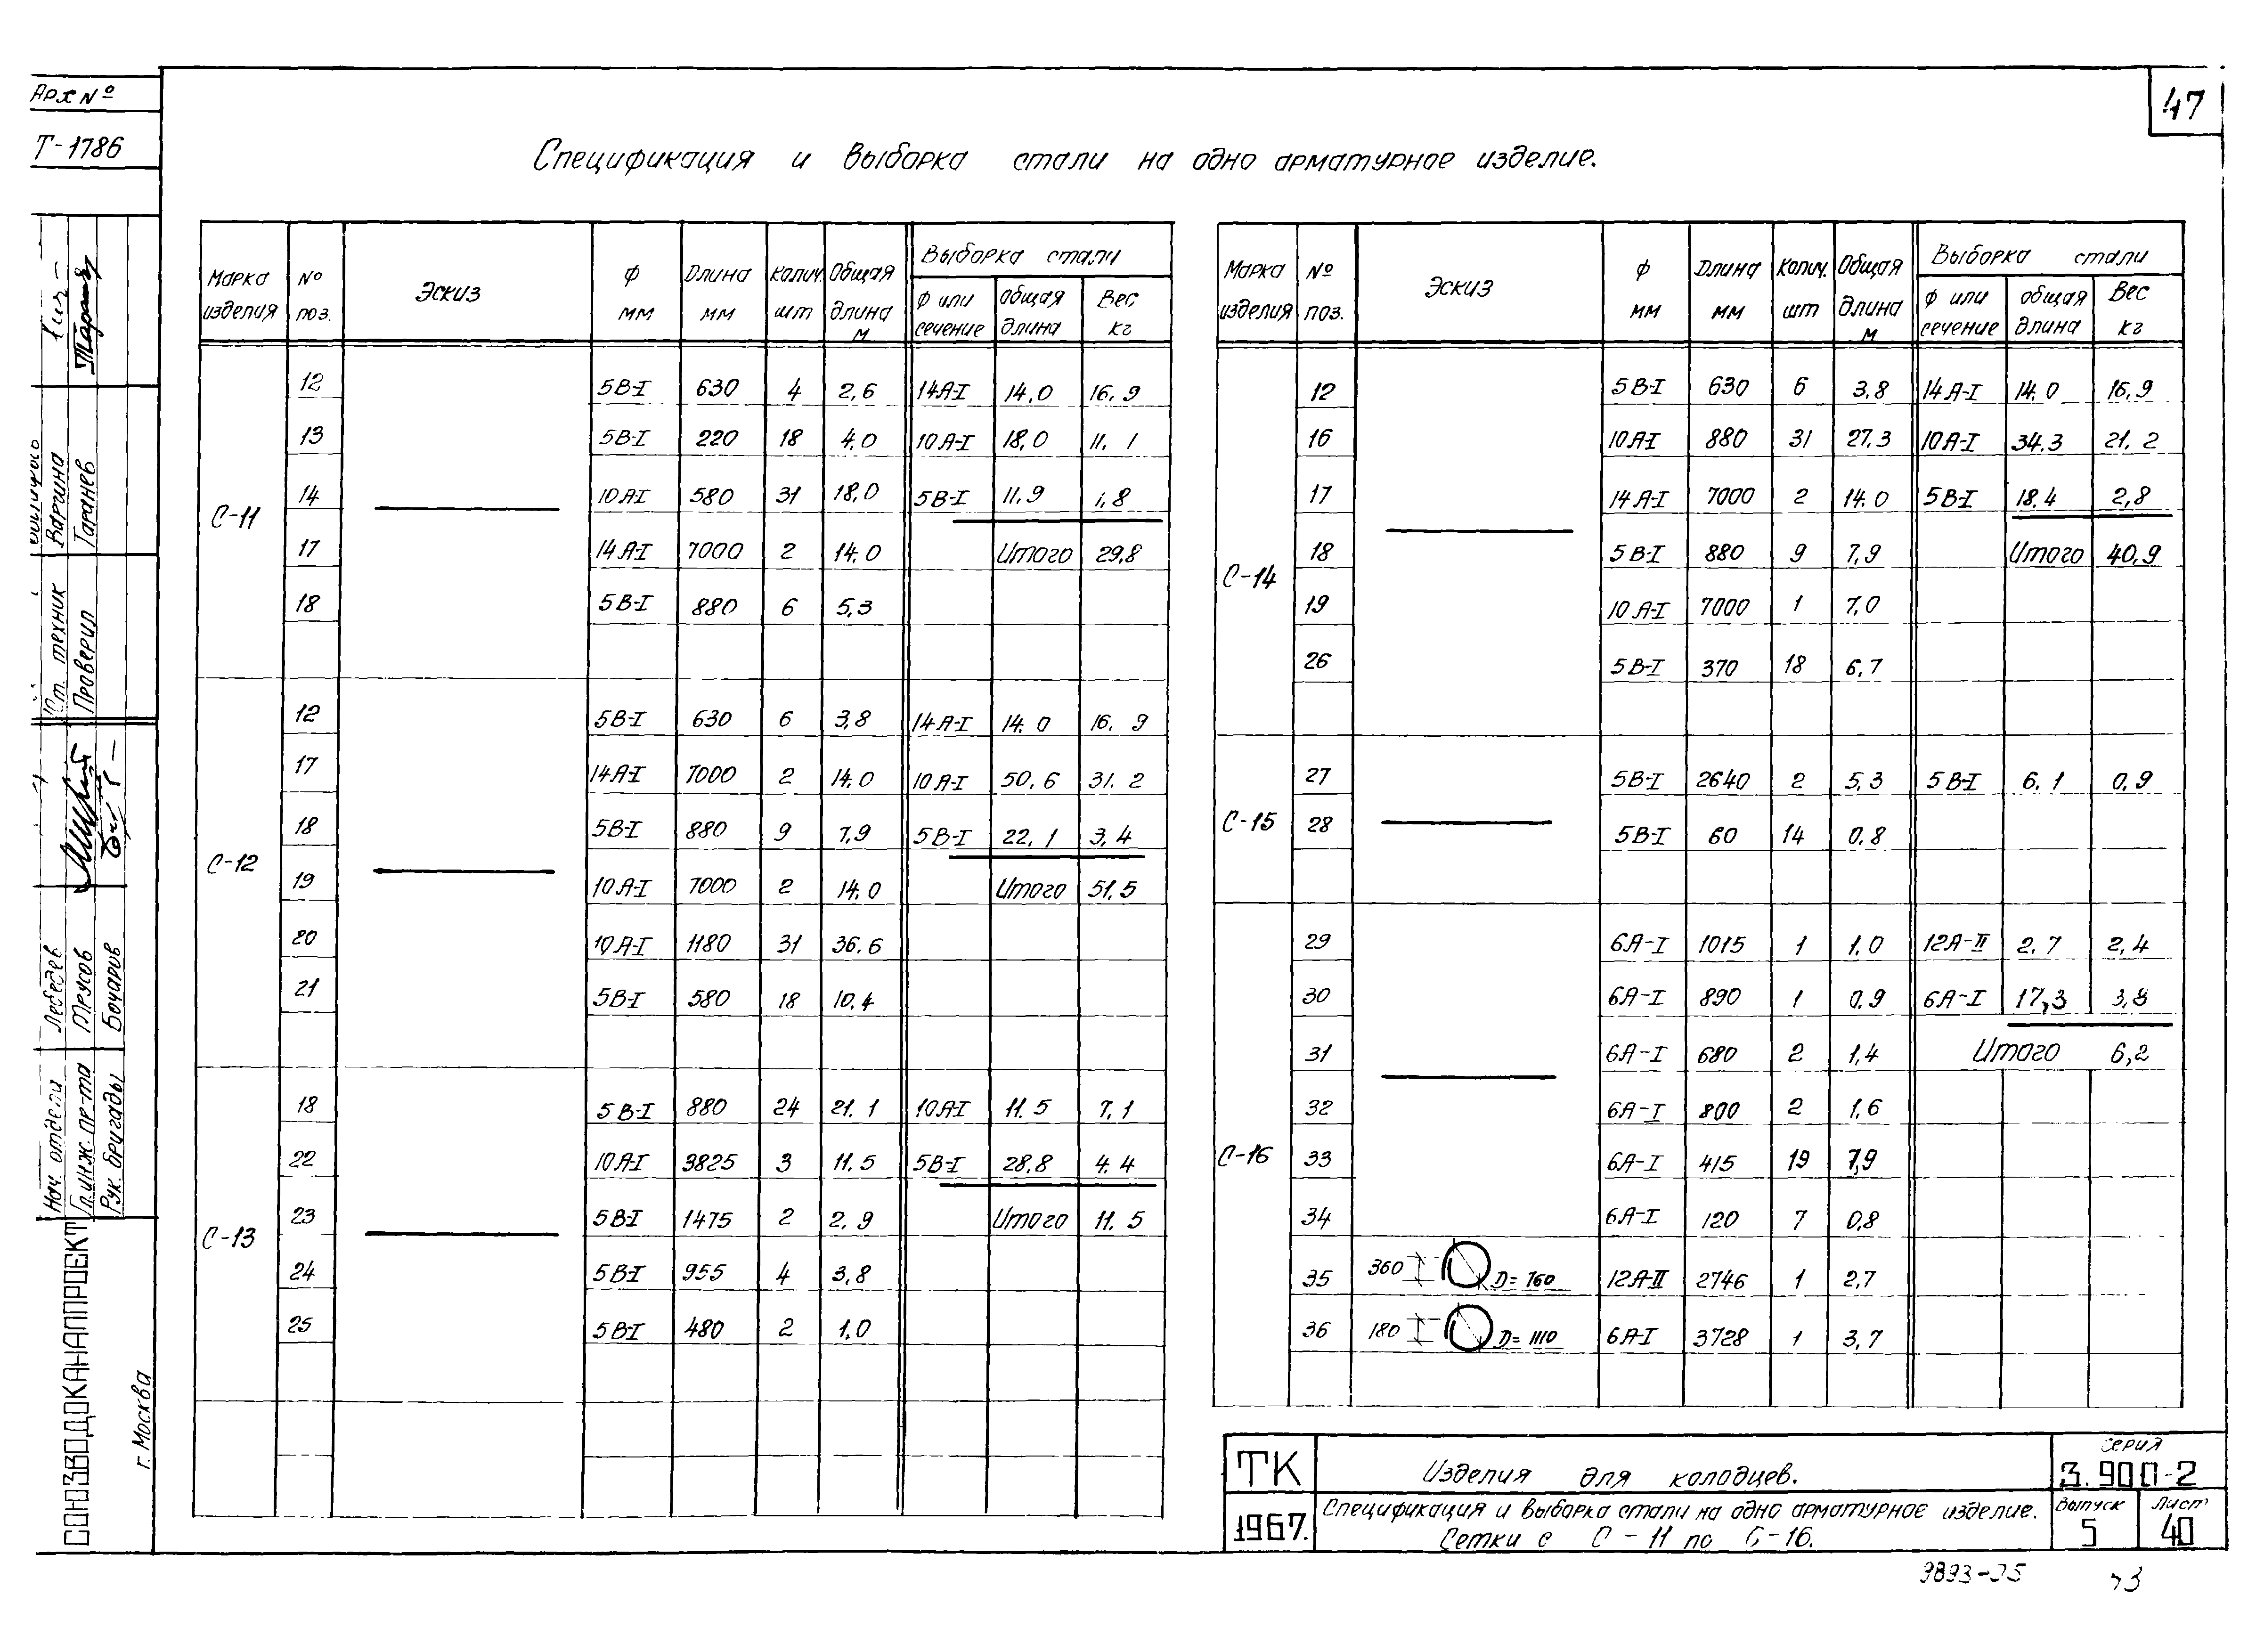 47
Арх №
Т-1786
Спецификация и выборка стали на одно арматурное изделие.
Марка изделия | № поз. | Эскиз | Ф мм | Длина мм | Колич. шт | Общая длина м | Выборка стали
Ф или сечение | Общая длина | Вес кг
С-11
12 | 5В-I | 630 | 4 | 2,6 | 14А-I | 14,0 | 16,9
13 | 5В-I | 220 | 18 | 4,0 | 10А-I | 18,0 | 11,1
14 | 10А-I | 580 | 31 | 18,0 | 5В-I | 11,9 | 1,8
17 | 14А-I | 7000 | 2 | 14,0 | Итого | 29,8
18 | 5В-I | 880 | 6 | 5,3
С-12
12 | 5В-I | 630 | 6 | 3,8 | 14А-I | 14,0 | 16,9
17 | 14А-I | 7000 | 2 | 14,0 | 10А-I | 50,6 | 31,2
18 | 5В-I | 880 | 9 | 7,9 | 5В-I | 22,1 | 3,4
19 | 10А-I | 7000 | 2 | 14,0 | Итого | 51,5
20 | 10А-I | 1180 | 31 | 36,6
21 | 5В-I | 580 | 18 | 10,4
С-13
18 | 5В-I | 880 | 24 | 21,1 | 10А-I | 11,5 | 7,1
22 | 10А-I | 3825 | 3 | 11,5 | 5В-I | 28,8 | 4,4
23 | 5В-I | 1475 | 2 | 2,9 | Итого | 11,5
24 | 5В-I | 955 | 4 | 3,8
25 | 5В-I | 480 | 2 | 1,0
Марка изделия | № поз. | Эскиз | Ф мм | Длина мм | Колич. шт | Общая длина м | Выборка стали
Ф или сечение | Общая длина | Вес кг
С-14
12 | 5В-I | 630 | 6 | 3,8 | 14А-I | 14,0 | 16,9
16 | 10А-I | 880 | 31 | 27,3 | 10А-I | 34,3 | 21,2
17 | 14А-I | 7000 | 2 | 14,0 | 5В-I | 18,4 | 2,8
18 | 5В-I | 880 | 9 | 7,9 | Итого | 40,9
19 | 10А-I | 7000 | 1 | 7,0
26 | 5В-I | 370 | 18 | 6,7
С-15
27 | 5В-I | 2640 | 2 | 5,3 | 5В-I | 6,1 | 0,9
28 | 5В-I | 60 | 14 | 0,8
С-16
29 | 6А-I | 1015 | 1 | 1,0 | 12А-II | 2,7 | 2,4
30 | 6А-I | 890 | 1 | 0,9 | 6А-I | 17,3 | 3,8
31 | 6А-I | 680 | 2 | 1,4 | Итого | 6,2
32 | 6А-I | 800 | 2 | 1,6
33 | 6А-I | 415 | 19 | 7,9
34 | 6А-I | 120 | 7 | 0,8
35 | 360 D=760 | 12А-II | 2746 | 1 | 2,7
36 | 180 D=1110 | 6А-I | 3728 | 1 | 3,7
Ст. техник Варгина
Проверил Таранев
Нач. отдела Лебедев
Гл. инж. пр-та Трусов
Рук. бригады Бочаров
СОЮЗВОДОКАНАЛПРОЕКТ
г. Москва
ТК
1967г.
Изделия для колодцев.
Спецификация и выборка стали на одно арматурное изделие.
Сетки с С-11 по С-16.
Серия
3.900-2
Выпуск 5
Лист 40